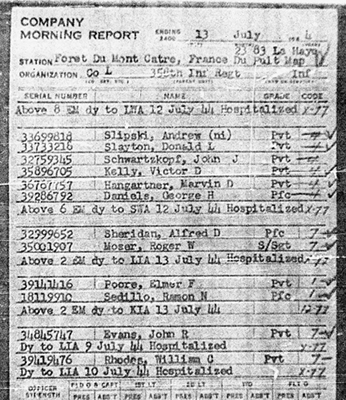 COMPANY
MORNING REPORT ENDING 2400 13 July 4
23°83 La Haye
STATION Foret Du Mont Catre, France Du Puit Map
ORGANIZATION Co L 358th Inf Regt Inf
SERIAL NUMBER NAME GRADE CODE
Above 8 EM dy to LWA 12 July 44 Hospitalized X-77
33699818 Slipski, Andrew (ni) Pvt
33733216 Slayton, Donald L Pvt
32759345 Schwartzkopf, John J Pvt
35896705 Kelly, Victor D Pvt
36767757 Hangartner, Marvin D Pvt
39286792 Daniels, George H Pfc
Above 6 EM dy to SWA 12 July 44 Hospitalized X-77
32999652 Sheridan, Alfred D Pfc 7
35001907 Moser, Roger W S/Sgt 7
Above 2 EM dy to LIA 13 July 44 Hospitalized X-77
39141416 Poore, Elmer F Pvt 1
18119910 Sedillo, Ramon N Pfc 1
Above 2 EM dy to KIA 13 July 44
34845747 Evans, John R Pvt 7
Dy to LIA 9 July 44 Hospitalized X-77
39419476 Rhodes, William C Pvt 7
Dy to LIA 10 July 44 Hospitalized X-77
OFFICER STRENGTH FLD O & CAPT 1ST LT 2D LT WO FLT O
PRES ABS'T PRES ABS'T PRES ABS'T PRES ABS'T PRES ABS'T